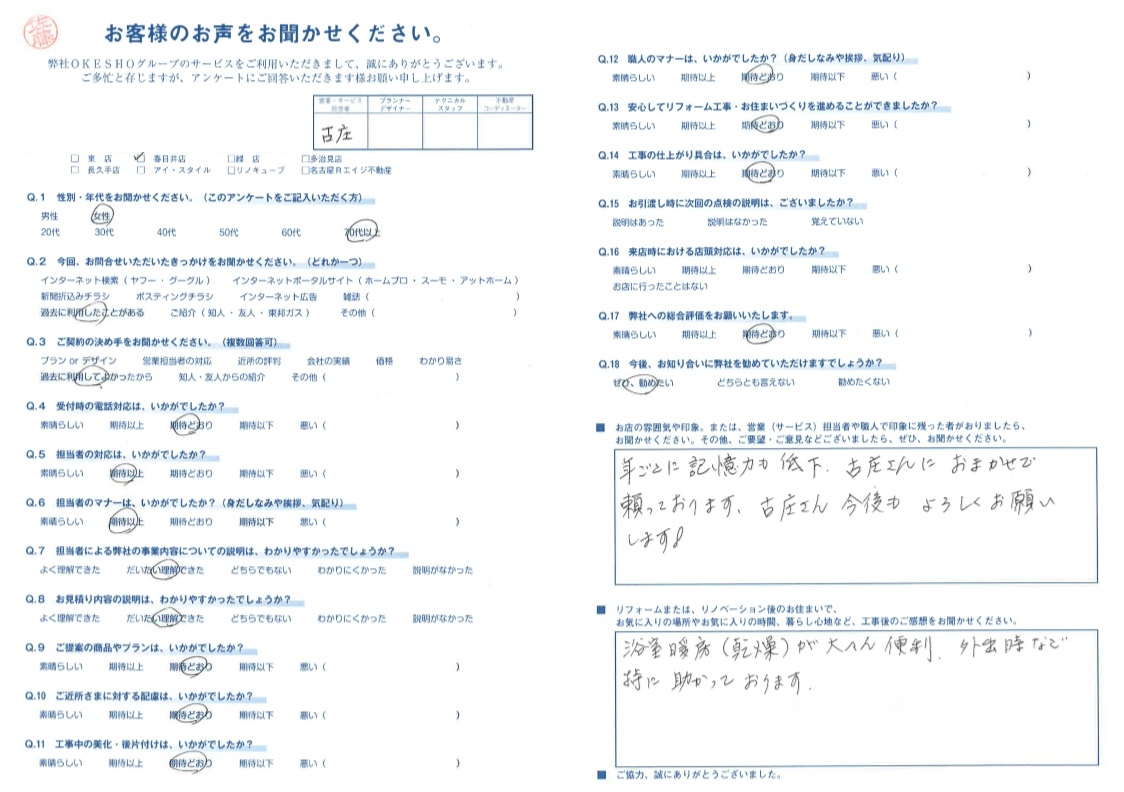 佐藤
お客様のお声をお聞かせください。
弊社OKESHOグループのサービスをご利用いただきまして、誠にありがとうございます。
ご多忙と存じますが、アンケートにご回答いただきます様お願い申し上げます。
営業・サービス担当者 プランナーデザイナー テクニカルスタッフ 不動産コーディネーター
古庄
□ 東 店 □ 春日井店 □緑 店 □多治見店
□ 長久手店 □ アイ・スタイル □リノキューブ □名古屋Rエイジ不動産
Q.1 性別・年代をお聞かせください。(このアンケートをご記入いただく方)
男性 女性
20代 30代 40代 50代 60代 70代以上
Q.2 今回、お問合せいただいたきっかけをお聞かせください。(どれか一つ)
インターネット検索(ヤフー・グーグル) インターネットポータルサイト(ホームプロ・スーモ・アットホーム)
新聞折込みチラシ ポスティングチラシ インターネット広告 雑誌( )
過去に利用したことがある ご紹介(知人・友人・東邦ガス) その他( )
Q.3 ご契約の決め手をお聞かせください。(複数回答可)
プラン or デザイン 営業担当者の対応 近所の評判 会社の実績 価格 わかり易さ
過去に利用してよかったから 知人・友人からの紹介 その他( )
Q.4 受付時の電話対応は、いかがでしたか?
素晴らしい 期待以上 期待どおり 期待以下 悪い( )
Q.5 担当者の対応は、いかがでしたか?
素晴らしい 期待以上 期待どおり 期待以下 悪い( )
Q.6 担当者のマナーは、いかがでしたか?(身だしなみや挨拶、気配り)
素晴らしい 期待以上 期待どおり 期待以下 悪い( )
Q.7 担当者による弊社の事業内容についての説明は、わかりやすかったでしょうか?
よく理解できた だいたい理解できた どちらでもない わかりにくかった 説明がなかった
Q.8 お見積り内容の説明は、わかりやすかったでしょうか?
よく理解できた だいたい理解できた どちらでもない わかりにくかった 説明がなかった
Q.9 ご提案の商品やプランは、いかがでしたか?
素晴らしい 期待以上 期待どおり 期待以下 悪い( )
Q.10 ご近所さまに対する配慮は、いかがでしたか?
素晴らしい 期待以上 期待どおり 期待以下 悪い( )
Q.11 工事中の美化・後片付けは、いかがでしたか?
素晴らしい 期待以上 期待どおり 期待以下 悪い( )
Q.12 職人のマナーは、いかがでしたか?(身だしなみや挨拶、気配り)
素晴らしい 期待以上 期待どおり 期待以下 悪い( )
Q.13 安心してリフォーム工事・お住まいづくりを進めることができましたか?
素晴らしい 期待以上 期待どおり 期待以下 悪い( )
Q.14 工事の仕上がり具合は、いかがでしたか?
素晴らしい 期待以上 期待どおり 期待以下 悪い( )
Q.15 お引渡し時に次回の点検の説明は、ございましたか?
説明はあった 説明はなかった 覚えていない
Q.16 来店時における店頭対応は、いかがでしたか?
素晴らしい 期待以上 期待どおり 期待以下 悪い( )
お店に行ったことはない
Q.17 弊社への総合評価をお願いいたします。
素晴らしい 期待以上 期待どおり 期待以下 悪い( )
Q.18 今後、お知り合いに弊社を勧めていただけますでしょうか?
ぜひ、勧めたい どちらとも言えない 勧めたくない
■ お店の雰囲気や印象。または、営業(サービス)担当者や職人で印象に残った者がおりましたら、
お聞かせください。その他、ご要望・ご意見などございましたら、ぜひ、お聞かせください。
年ごとに記憶力も低下、古庄さんにおまかせで
頼っております、古庄さん今後もよろしくお願い
します♪
■ リフォームまたは、リノベーション後のお住まいで、
お気に入りの場所やお気に入りの時間、暮らし心地など、工事後のご感想をお聞かせください。
浴室暖房(乾燥)が大へん便利、外出時などで
特に助かっております.
■ ご協力、誠にありがとうございました。